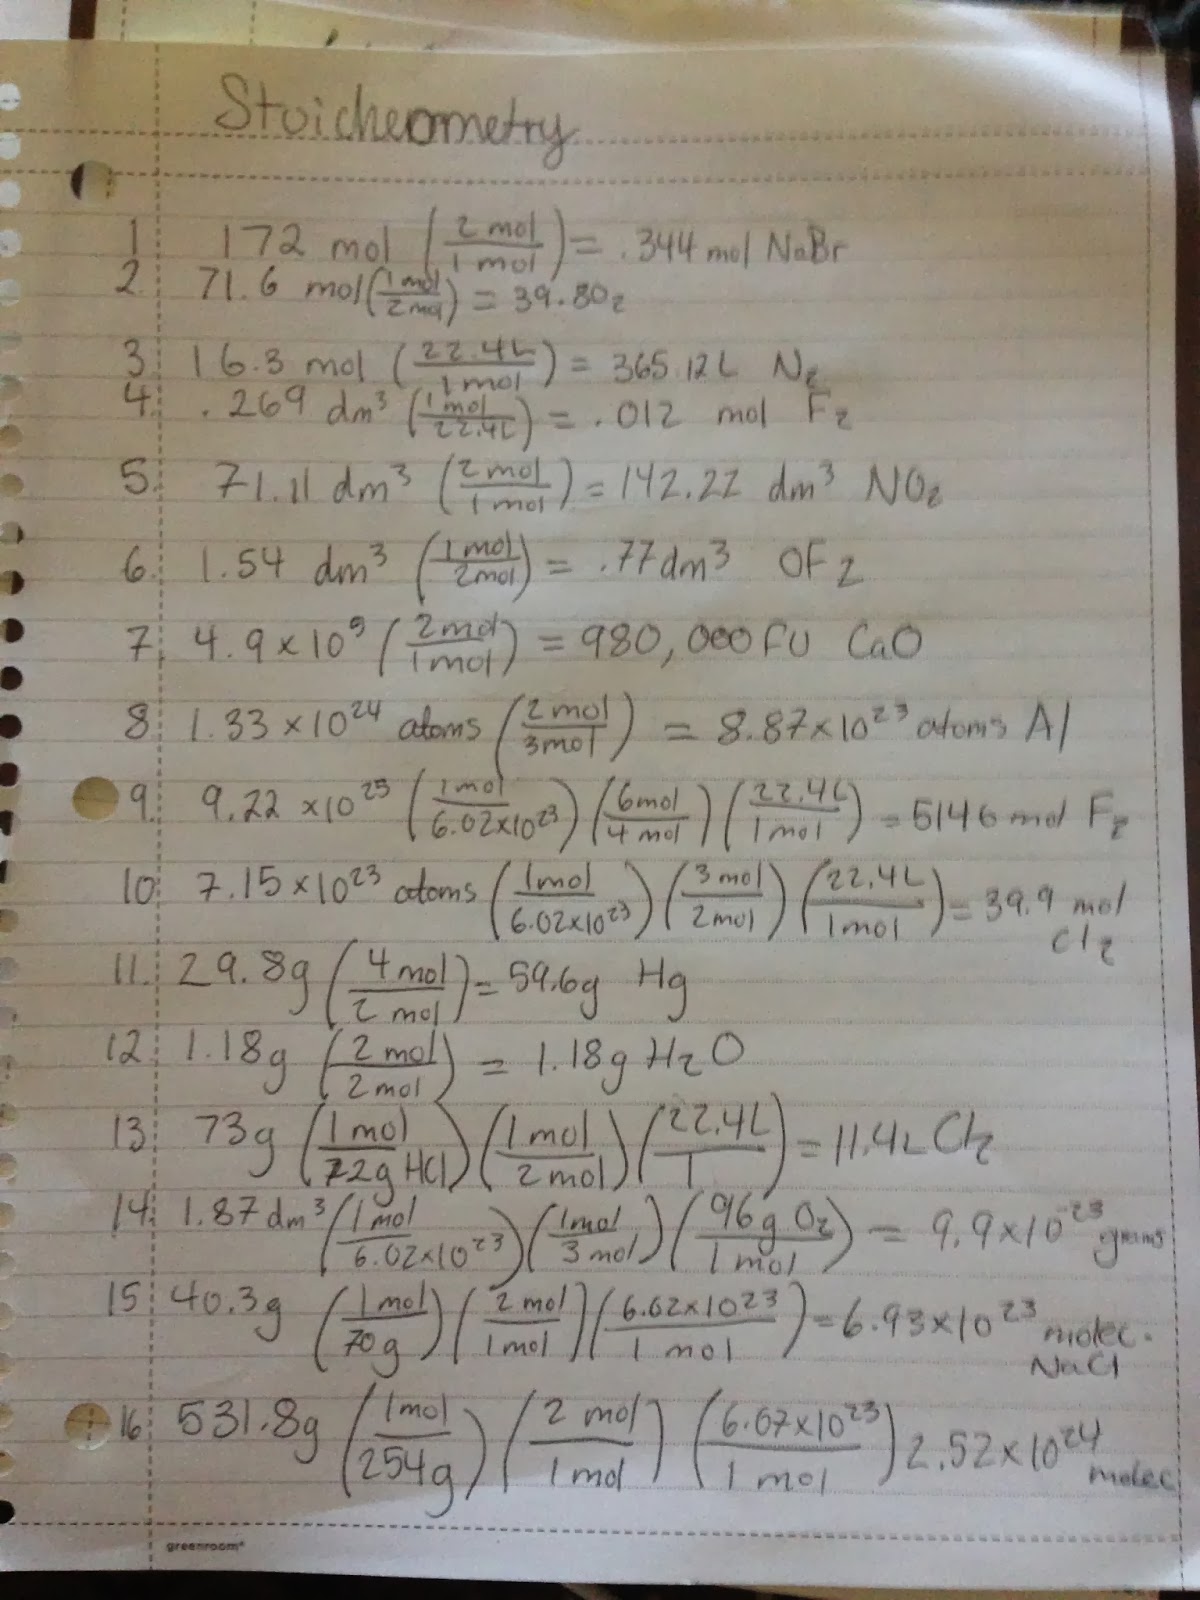 Stoicheometry
1 172 mol (2 mol / 1 mol) = .344 mol NaBr
2. 71.6 mol (1 mol / 2 mol) = 39.8 O2
3. 16.3 mol (22.4L / 1 mol) = 365.12L N2
4. .269 dm³ (1 mol / 22.4L) = .012 mol F2
5. 71.11 dm³ (2 mol / 1 mol) = 142.22 dm³ NO2
6. 1.54 dm³ (1 mol / 2 mol) = .77 dm³ OF2
7. 4.9 × 10⁵ (2 mol / 1 mol) = 980,000 FU CaO
8. 1.33 × 10²⁴ atoms (2 mol / 3 mol) = 8.87 × 10²³ atoms Al
9. 9.22 × 10²⁵ (1 mol / 6.02 × 10²³) (6 mol / 4 mol) (22.4L / 1 mol) = 5146 mol F2
10. 7.15 × 10²³ atoms (1 mol / 6.02 × 10²³) (3 mol / 2 mol) (22.4L / 1 mol) = 39.9 mol
Cl2
11. 29.8g (4 mol / 2 mol) = 59.6g Hg
12. 1.18g (2 mol / 2 mol) = 1.18g H2O
13. 73g (1 mol / 72g HCl) (1 mol / 2 mol) (22.4L / 1) = 11.4L Cl2
14. 1.87 dm³ (1 mol / 6.02 × 10²³) (1 mol / 3 mol) (96g O2 / 1 mol) = 9.9 × 10⁻²³ grams
15. 40.3g (1 mol / 70g) (2 mol / 1 mol) (6.02 × 10²³ / 1 mol) = 6.93 × 10²³ molec.
NaCl
16. 531.8g (1 mol / 254g) (2 mol / 1 mol) (6.07 × 10²³ / 1 mol) 2.52 × 10²⁴
molec
greenroom®